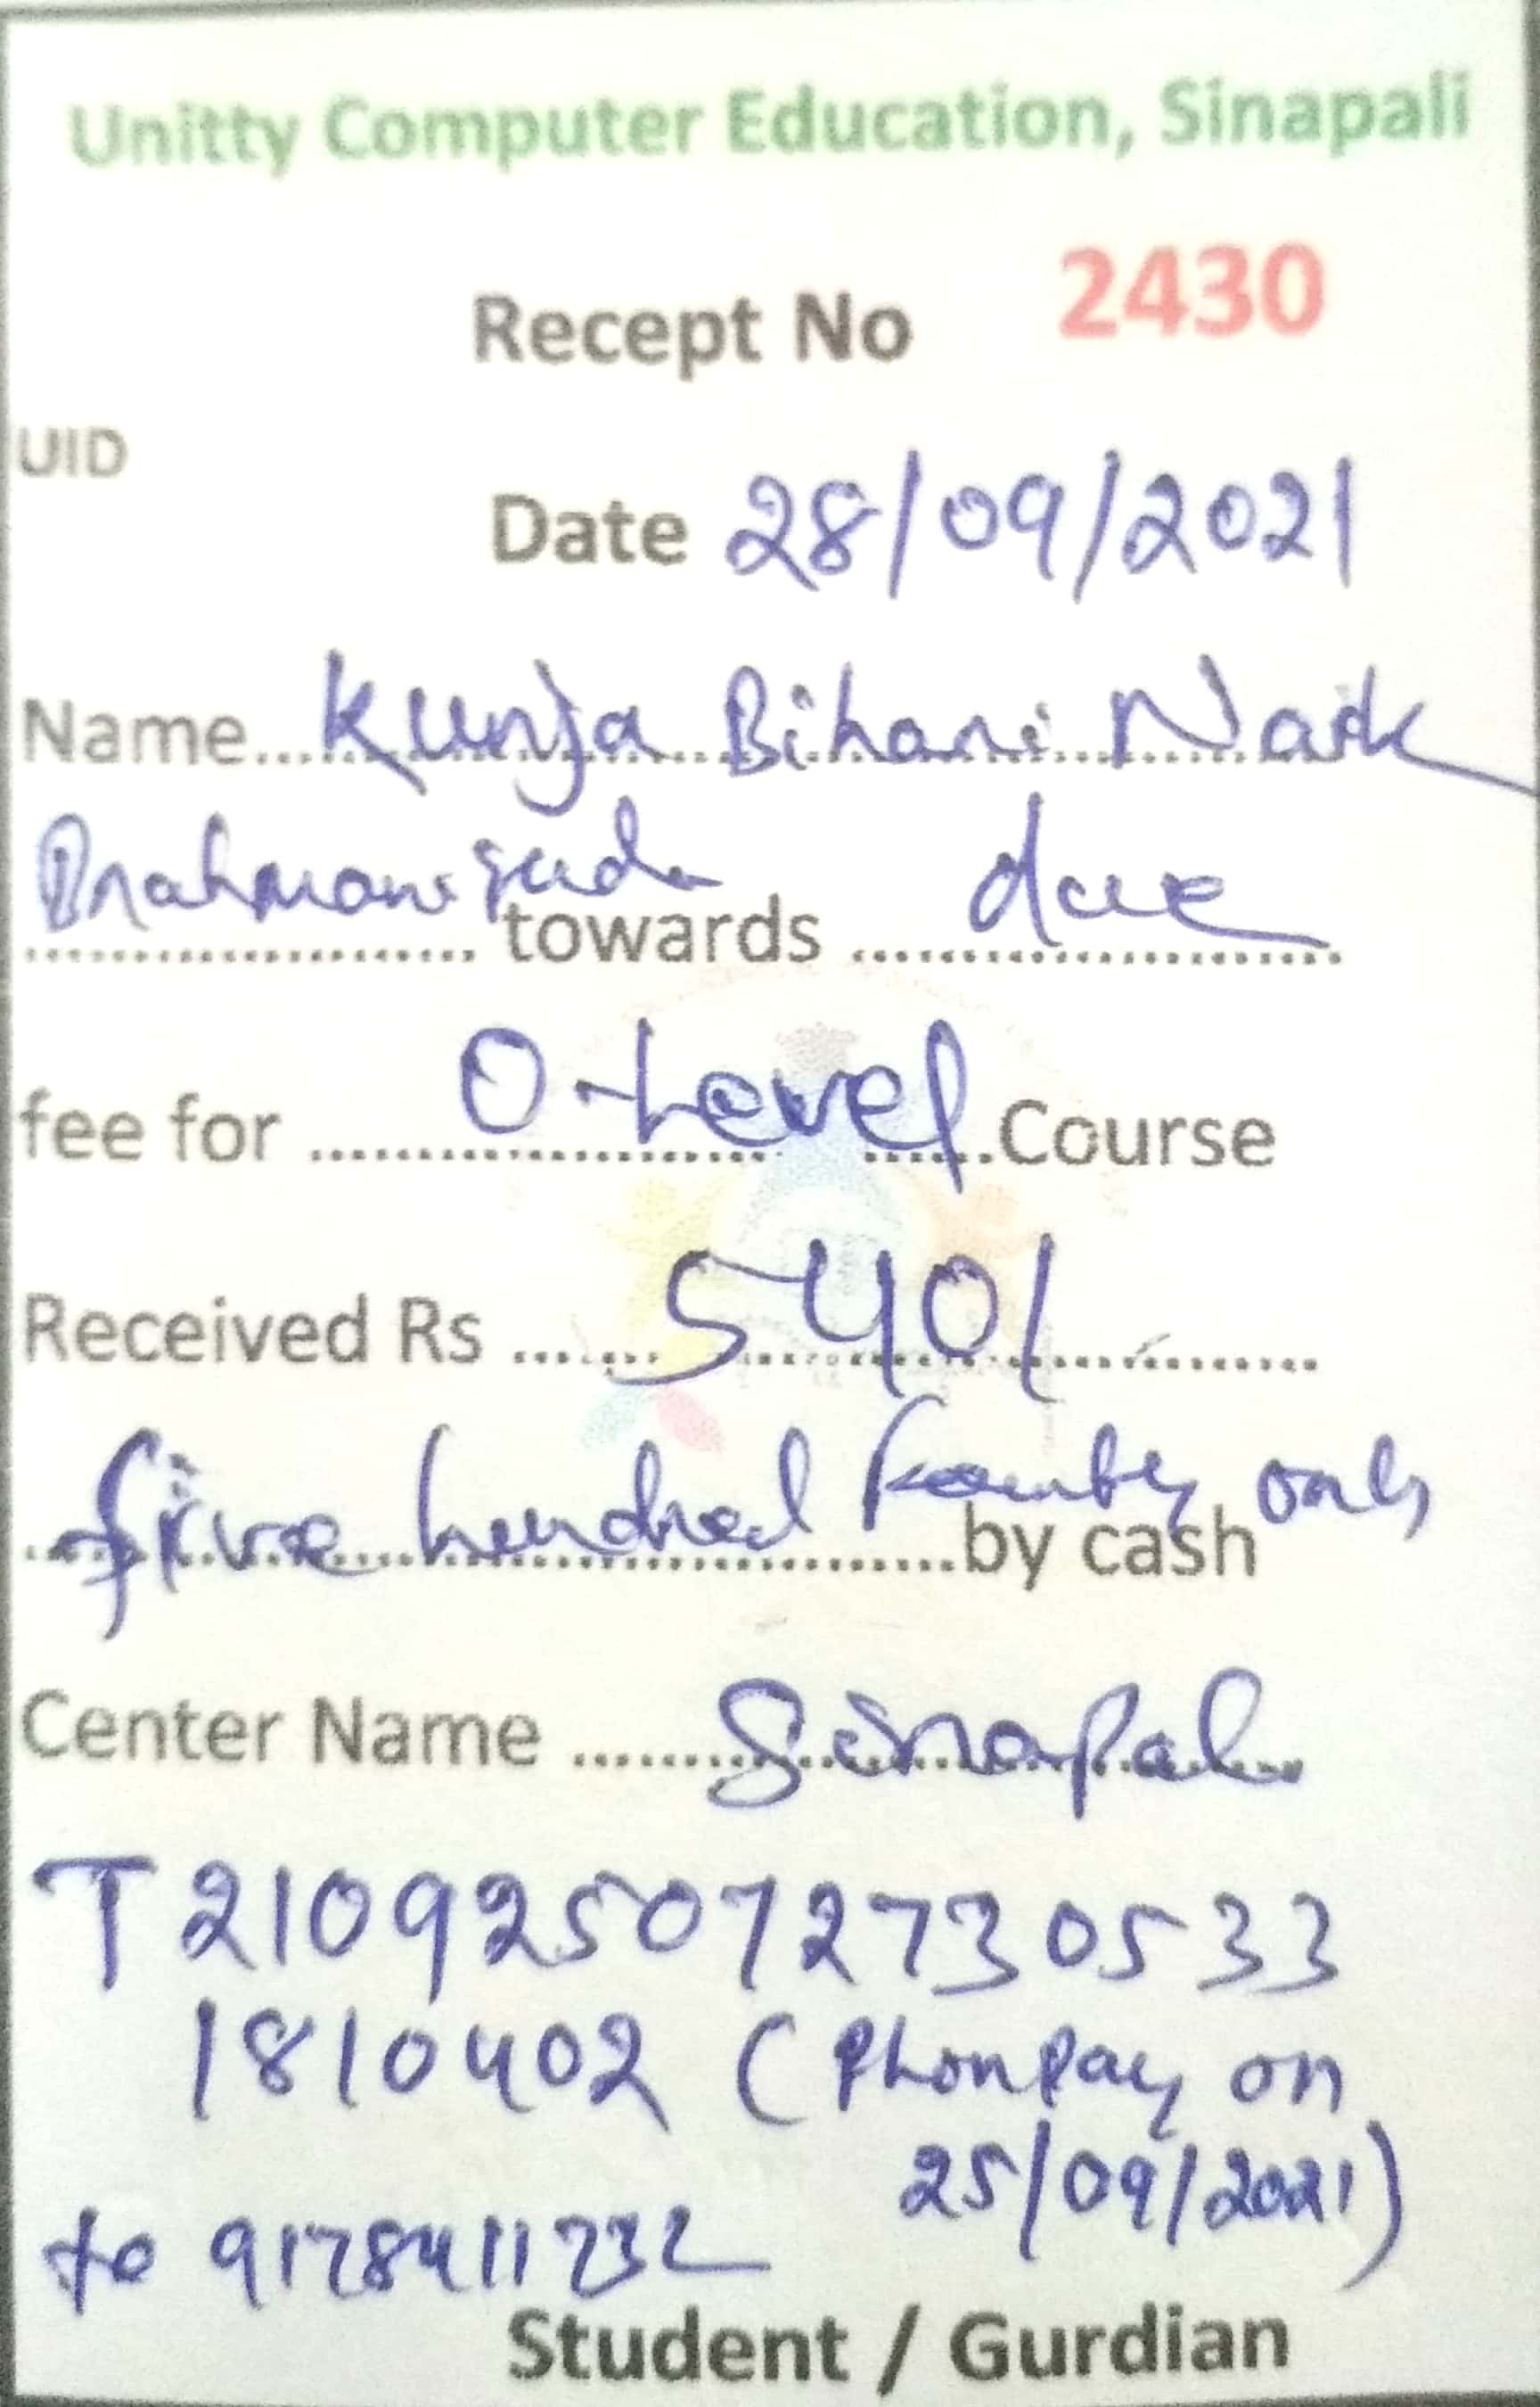 Unitty Computer Education, Sinapali
Recept No 2430
UID
Date 28/09/2021
Name....Kunja Bihari Naik
Brahmanguda towards due
fee for O-Level Course
Received Rs 540/
five hundred fourty only by cash
Center Name Sinapali
T2109250727 30533
1810402 (PhonPay on
25/09/2021)
to 9178411732
Student / Gurdian